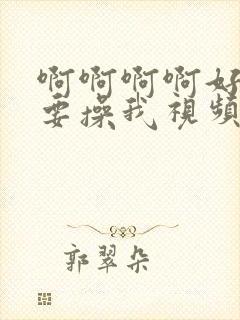 啊啊啊啊好
要操我視頻
郭翠朵